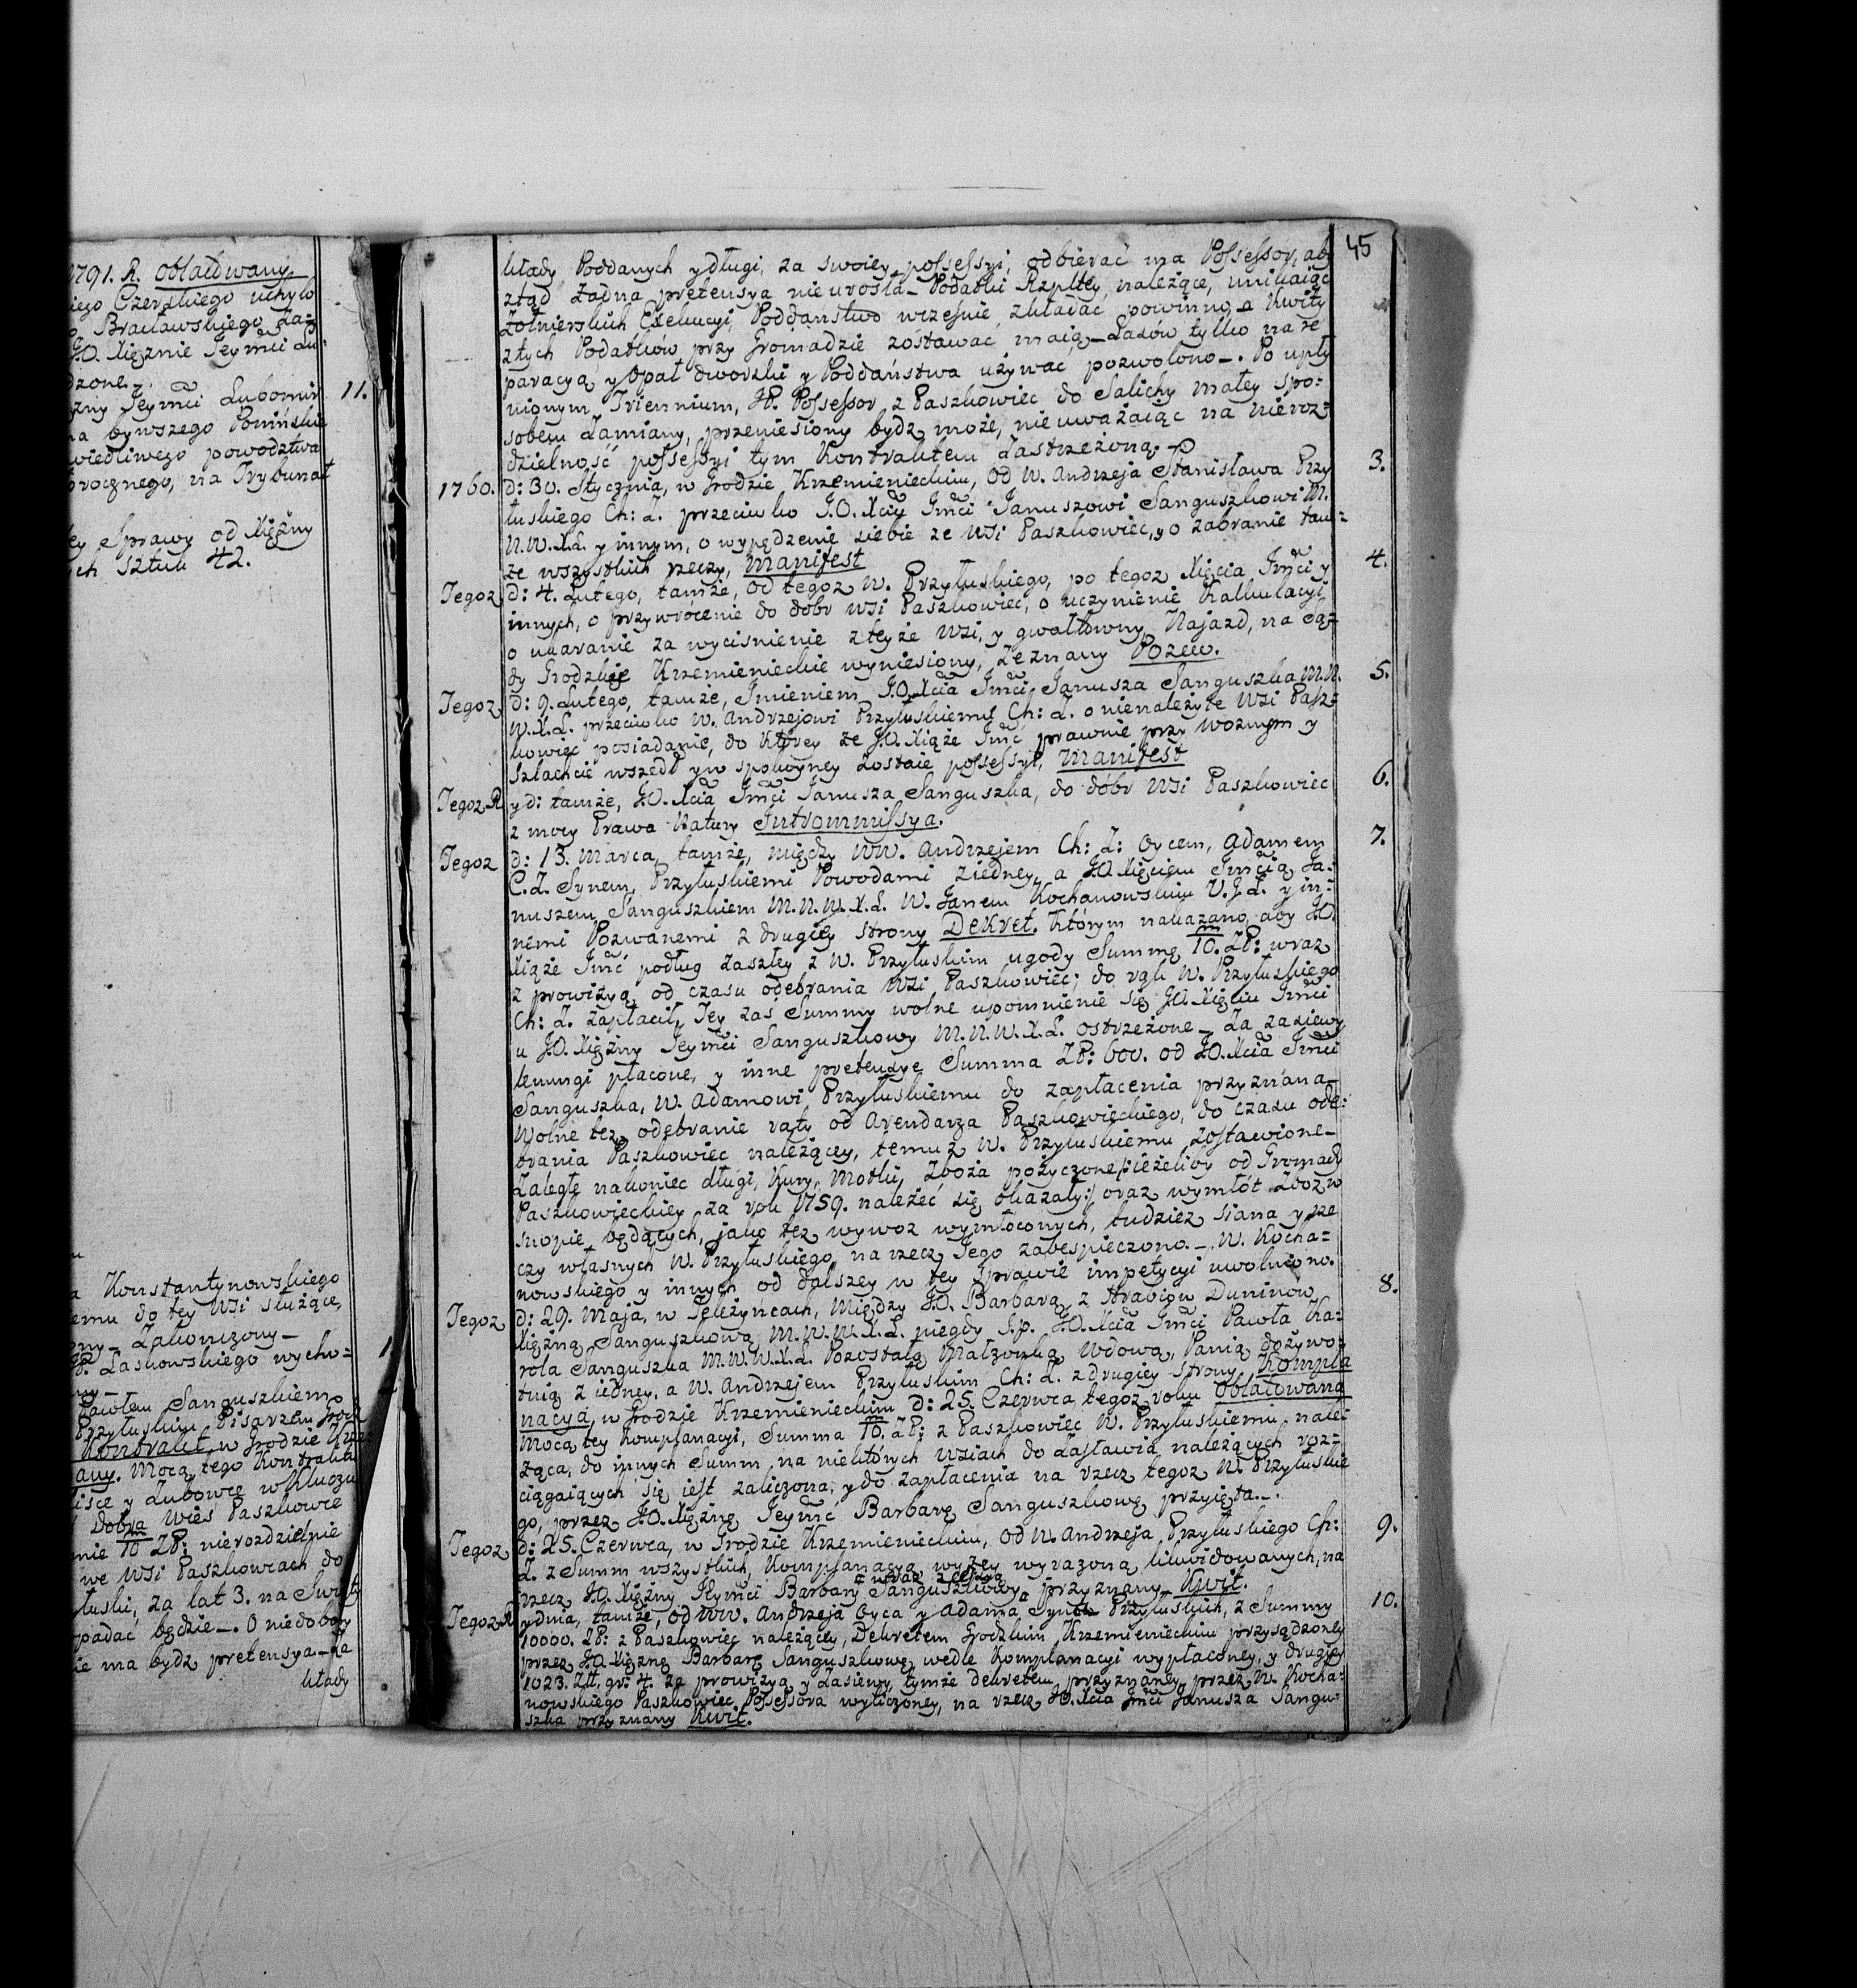 1791. R. oblatowany.
iego Czerskiego uchylo
Bracławskiego Za=
J.O. Xiężnie Jeymci Lu=
dzone.
żny Jeymci Lubomir 11.
na bywszego Ponińskie
wiedliwego powodztwa
rocznego, na Trybunał
ey Sprawy od Xiężny
ych Sztuk 42.
a Konstantynowskiego
emu do tey Wsi służące,
ony _ Zakonczony _
JP. Laskowskiego wycho= 1.
ny _
Pawłem Sanguszkiem
Przyłuskim Pisarzem Grodz
Kontrakt, w Grodzie Krze=
any. Mocą tego Kontraktu
isce y Lubowce w Kluczu
dobra Wieś Paszkowce
mie 10/m ZP: nierozdzielnie
we Wsi Paszkowcach do
łuski, za lat 3. na Swięt
padać będzie _. O niedobory
ie ma bydz pretensya _ Za
kłady
45
kłady Poddanych y długi, za swoiey possessyi, odbierać ma Possessor, aby
ztąd żadna pretensya nieurosła _ Podatki Rzpltey należące, unikaiąc
Żołnierskich Exekucyi, Poddaństwo wcześnie zkładać powinno _ a Kwity
z tych Podatków przy Gromadzie zostawać maią _ Lasów tylko na re
paracyą y Opał dworski y Poddaństwa używać pozwolono _. Po upły
nionym Triennium, JP. Possessor z Paszkowiec do Salichy małey spo=
sobem Zamiany, przeniesiony bydz może, nieuważaiąc na nieroz=
dzielność possessyi tym Kontraktem Zastrzeżoną.
1760. d: 30. Stycznia, w Grodzie Krzemienieckim, Od W. Andrzeja Stanisława Przy 3.
łuskiego Ch: Ż. przeciwko J.O. Xciu Jmci Januszowi Sanguszkowi M.
N.W.X.L. y innym, o wypędzenie siebie ze Wsi Paszkowiec, y o zabranie tam=
że wszystkich rzeczy, Manifest
Tegoż d: 4. Lutego, tamże, Od tegoż W. Przyłuskiego, po tegoż Xięcia Jmci y 4.
innych, o przywrócenie do dobr Wsi Paszkowiec, o uczynienie Kalkulacyi,
o ukaranie za wyciśnienie z teyże Wsi, y gwałtowny Najazd, na Są=
dy Grodzkie Krzemienieckie wyniesiony, Zeznany Pozew.
Tegoż d: 9. Lutego, tamże, Jmieniem J.O. Xcia Jmci Janusza Sanguszka M.N. 5.
W.X.L. przeciwko W. Andrzejowi Przyłuskiemu Ch: Ż. o nienależyte Wsi Pasz=
kowiec posiadanie, do Którey że J.O. Xiąże Jmć prawnie przy woznym y
Szlachcie wszedł y w spokoyney zostaie possessyi, Manifest
Tegoż R. y d: tamże, J.O. Xcia Jmci Janusza Sanguszka, do dóbr Wsi Paszkowiec 6.
z mocy Prawa Natury Jntrommissya.
Tegoż d: 13. Marca, tamże, między WW. Andrzejem Ch: Ż: Oycem, Adamem 7.
C.Ż. Synem, Przyłuskiemi Powodami z iedney, a J.O. Xięciem Jmcią Ja=
nuszem Sanguszkiem M.N.W.X.L. W. Janem Kochanowskim V.J.Ż. y in=
nemi Pozwanemi z drugiey strony Dekret. Którym nakazano, aby J.O.
Xiąże Jmć podług zaszłey z W. Przyłuskim ugody Summę 10/m. ZP: wraz
z prowizyą od czasu odebrania Wsi Paszkowiec; do rąk W. Przyłuskiego
Ch: Ż. zapłacił, Tey zaś Summy wolne upomnienie się J.O. Xięciu Jmci
u J.O. Xiężny Jeymci Sanguszkowy M.N.W.X.L. ostrzeżone _ Za zasiewy
lenungi płacone, y inne pretensye Summa ZP: 600. od J.O. Xcia Jmci
Sanguszka, W. Adamowi Przyłuskiemu do zapłacenia przyznana _
Wolne też odebranie raty od Arendarza Paszkowieckiego, do czasu ode=
brania Paszkowiec należącey, temuż W. Przyłuskiemu zostawione _
Zaległe nakoniec długi, Kury, Motki, Zboża pożyczone /: ieżeliby od Gromady
Paszkowieckiey za rok 1759. należeć się okazały :/ oraz wymłót Zboż w
snopie będących, jako też wywoz wymłoconych, tudzież siana y rze
czy własnych W. Przyłuskiego, na rzecz Jego zabespieczono _. W. Kocha=
nowskiego y innych od dalszey w tey sprawie impetycyi uwolniono.
Tegoż d: 29. Maja, w Teleżyncach, Między J.O. Barbarą z Hrabiow Duninow 8.
Xiężną Sanguszkową M.W.W.X.L. niegdy ś.p. J.O. Xcia Jmci Pawła Ka=
rola Sanguszka M.W.W.X.L. Pozostałą Małzonką Wdową, Panią dożywo=
tnią z iedney, a W. Andrzejem Przyłuskim Ch: Ż. z drugiey strony, Kompla
nacya, w Grodzie Krzemienieckim d: 25. Czerwca tegoż roku Oblatowana
Mocą tey Komplanacyi, Summa 10/m. ZP: z Paszkowiec W. Przyłuskiemu nale=
żąca, do innych Summ na niektórych Wsiach do Zasławia należących roz=
ciągaiących się iest zaliczona, y do zapłacenia na rzecz tegoż W. Przyłuskie
go, przez J.O. Xiężnę Jeymć Barbarę Sanguszkowę przyięta _.
Tegoż d: 25. Czerwca, w Grodzie Krzemienieckim, Od W. Andrzeja Przyłuskiego Ch: 9.
Ż. z Summ wszystkich, Komplanacyą wyżey wyrazoną likwidowanych, na
rzecz J.O. Xiężny Jeymci Barbary Sanguszkowy przyznany Kwit.
Tegoż R. y dnia, tamże, od WW. Andrzeja Oyca y Adama Syna Przyłuskich, z Summy 10.
10000. ZP: z Paszkowiec należącey, Dekretem Grodzkim Krzemienieckim przysądzoney
przez J.O. Xiężnę Barbarę Sanguszkowę wedle Komplanacyi wypłaconey, y drugiey
1023. Zł. gr: 4. za prowizyą y Zasiewy, tymże dekretem przyznaney, przez W. Kocha=
nowskiego Paszkowiec Possessora wyliczoney, na rzecz J.O. Xcia Jmci Janusza Sangu=
szka przyznany Kwit.